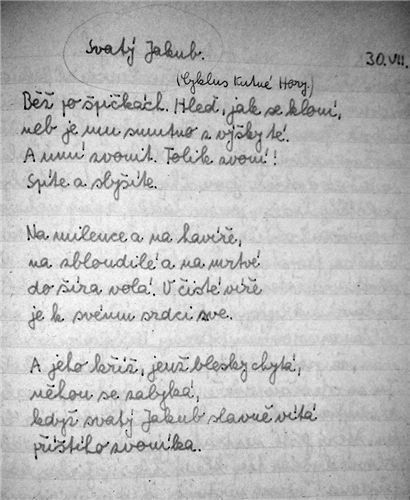 Svatý Jakub.
30.VII.
(Cyklus Kutné Hory.)
Běž po špičkách. Hleď, jak se kloní,
neb je mu smutno z výšky té.
A umí zvonit. Tolik zvoní!
Spíte a slyšíte.
Na milence a na havíře,
na zbloudilé a na mrtvé
do šíra volá. V čisté víře
je k svému srdci zve.
A jeho kříž, jenž blesky chytá,
něhou se zalyká,
když svatý Jakub slavně vítá
příštího zvoníka.